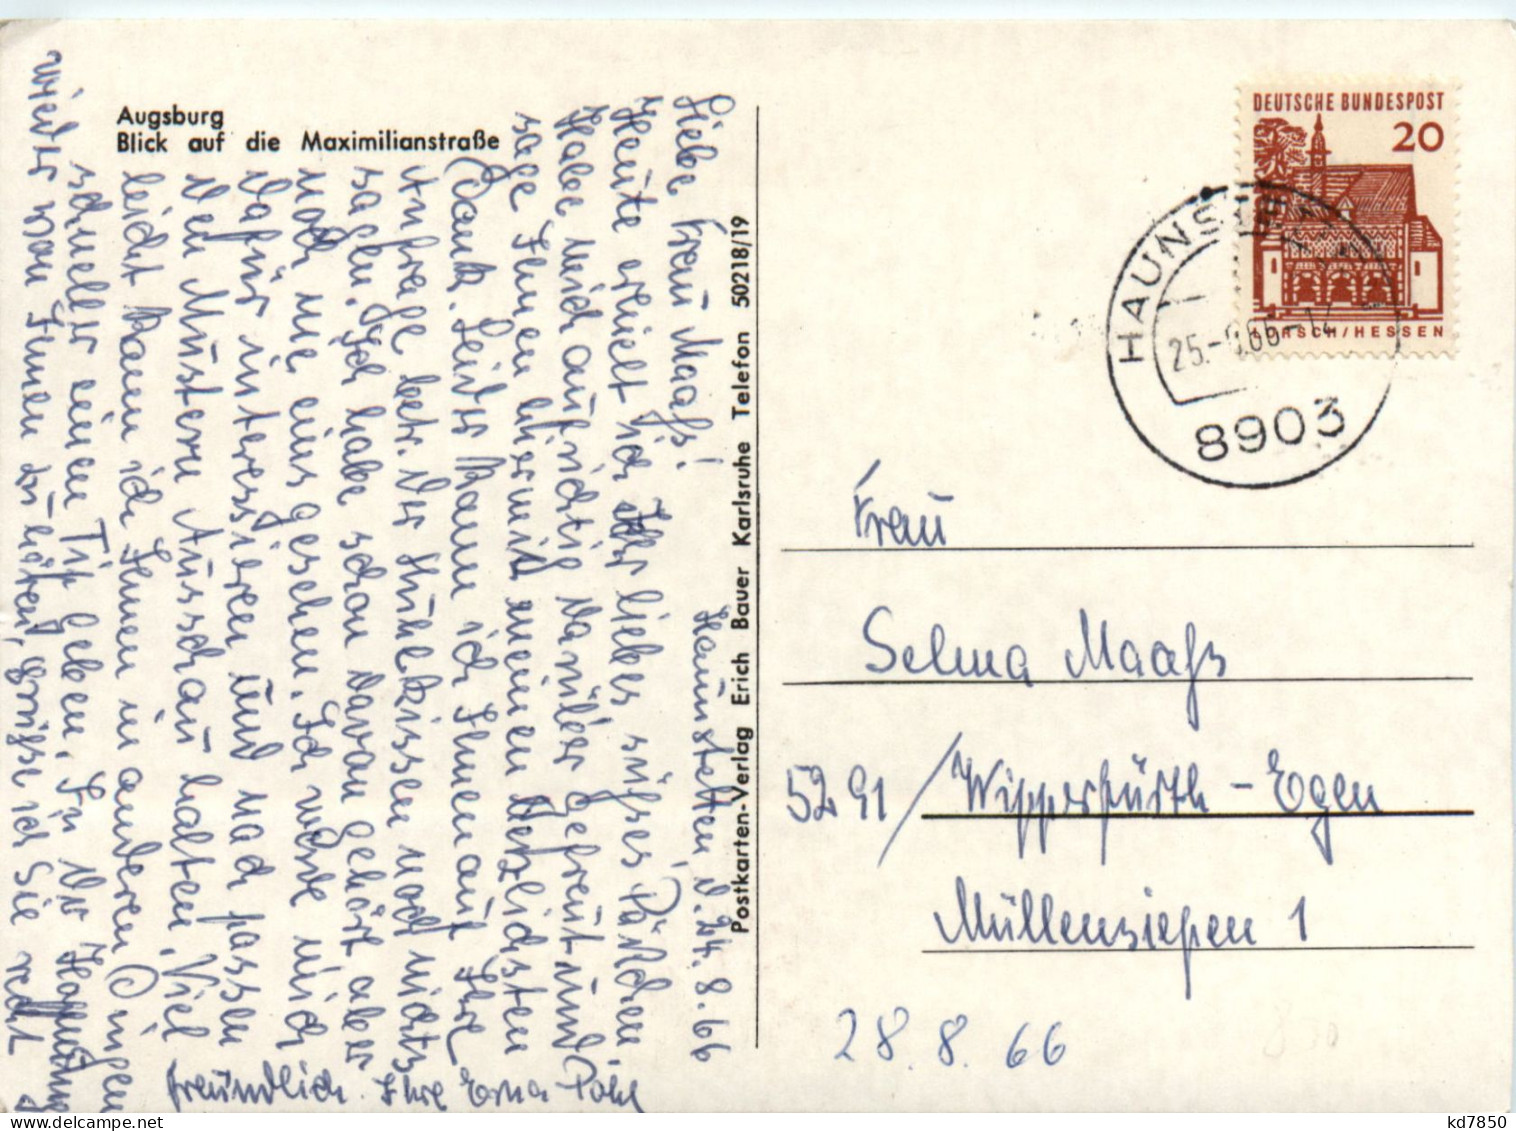 Augsburg
Blick auf die Maximilianstraße
Haunstetten, d. 24. 8. 66
Liebe Frau Maaß!
Heute erhielt ich Ihr liebes süßes Päckchen.
Habe mich aufrichtig darüber gefreut und
sage Ihnen hiermit meinen herzlichsten
Dank. Leider kann ich Ihnen auf Ihre
Anfrage betr. der Stuhlkissen noch nichts
sagen. Ich habe schon davon gehört aber
noch nie eins gesehen. Ich werde mich
dafür interessieren und nach passen
den Mustern Ausschau halten. Viel
leicht kann ich Ihnen in anderen Dingen
schneller einen Tip geben. In der Hoffnung
wieder von Ihnen zu hören, grüße ich Sie recht
freundlich. Ihre Erna Pohl
Postkarten-Verlag Erich Bauer Karlsruhe Telefon 50218/19
DEUTSCHE BUNDESPOST
20
LORSCH/HESSEN
HAUNSTETTEN
25.-8.66-12
8903
Frau
Selma Maaß
5291 / Wipperfürth - Egen
Müllensiepen 1
28. 8. 66
kd7850